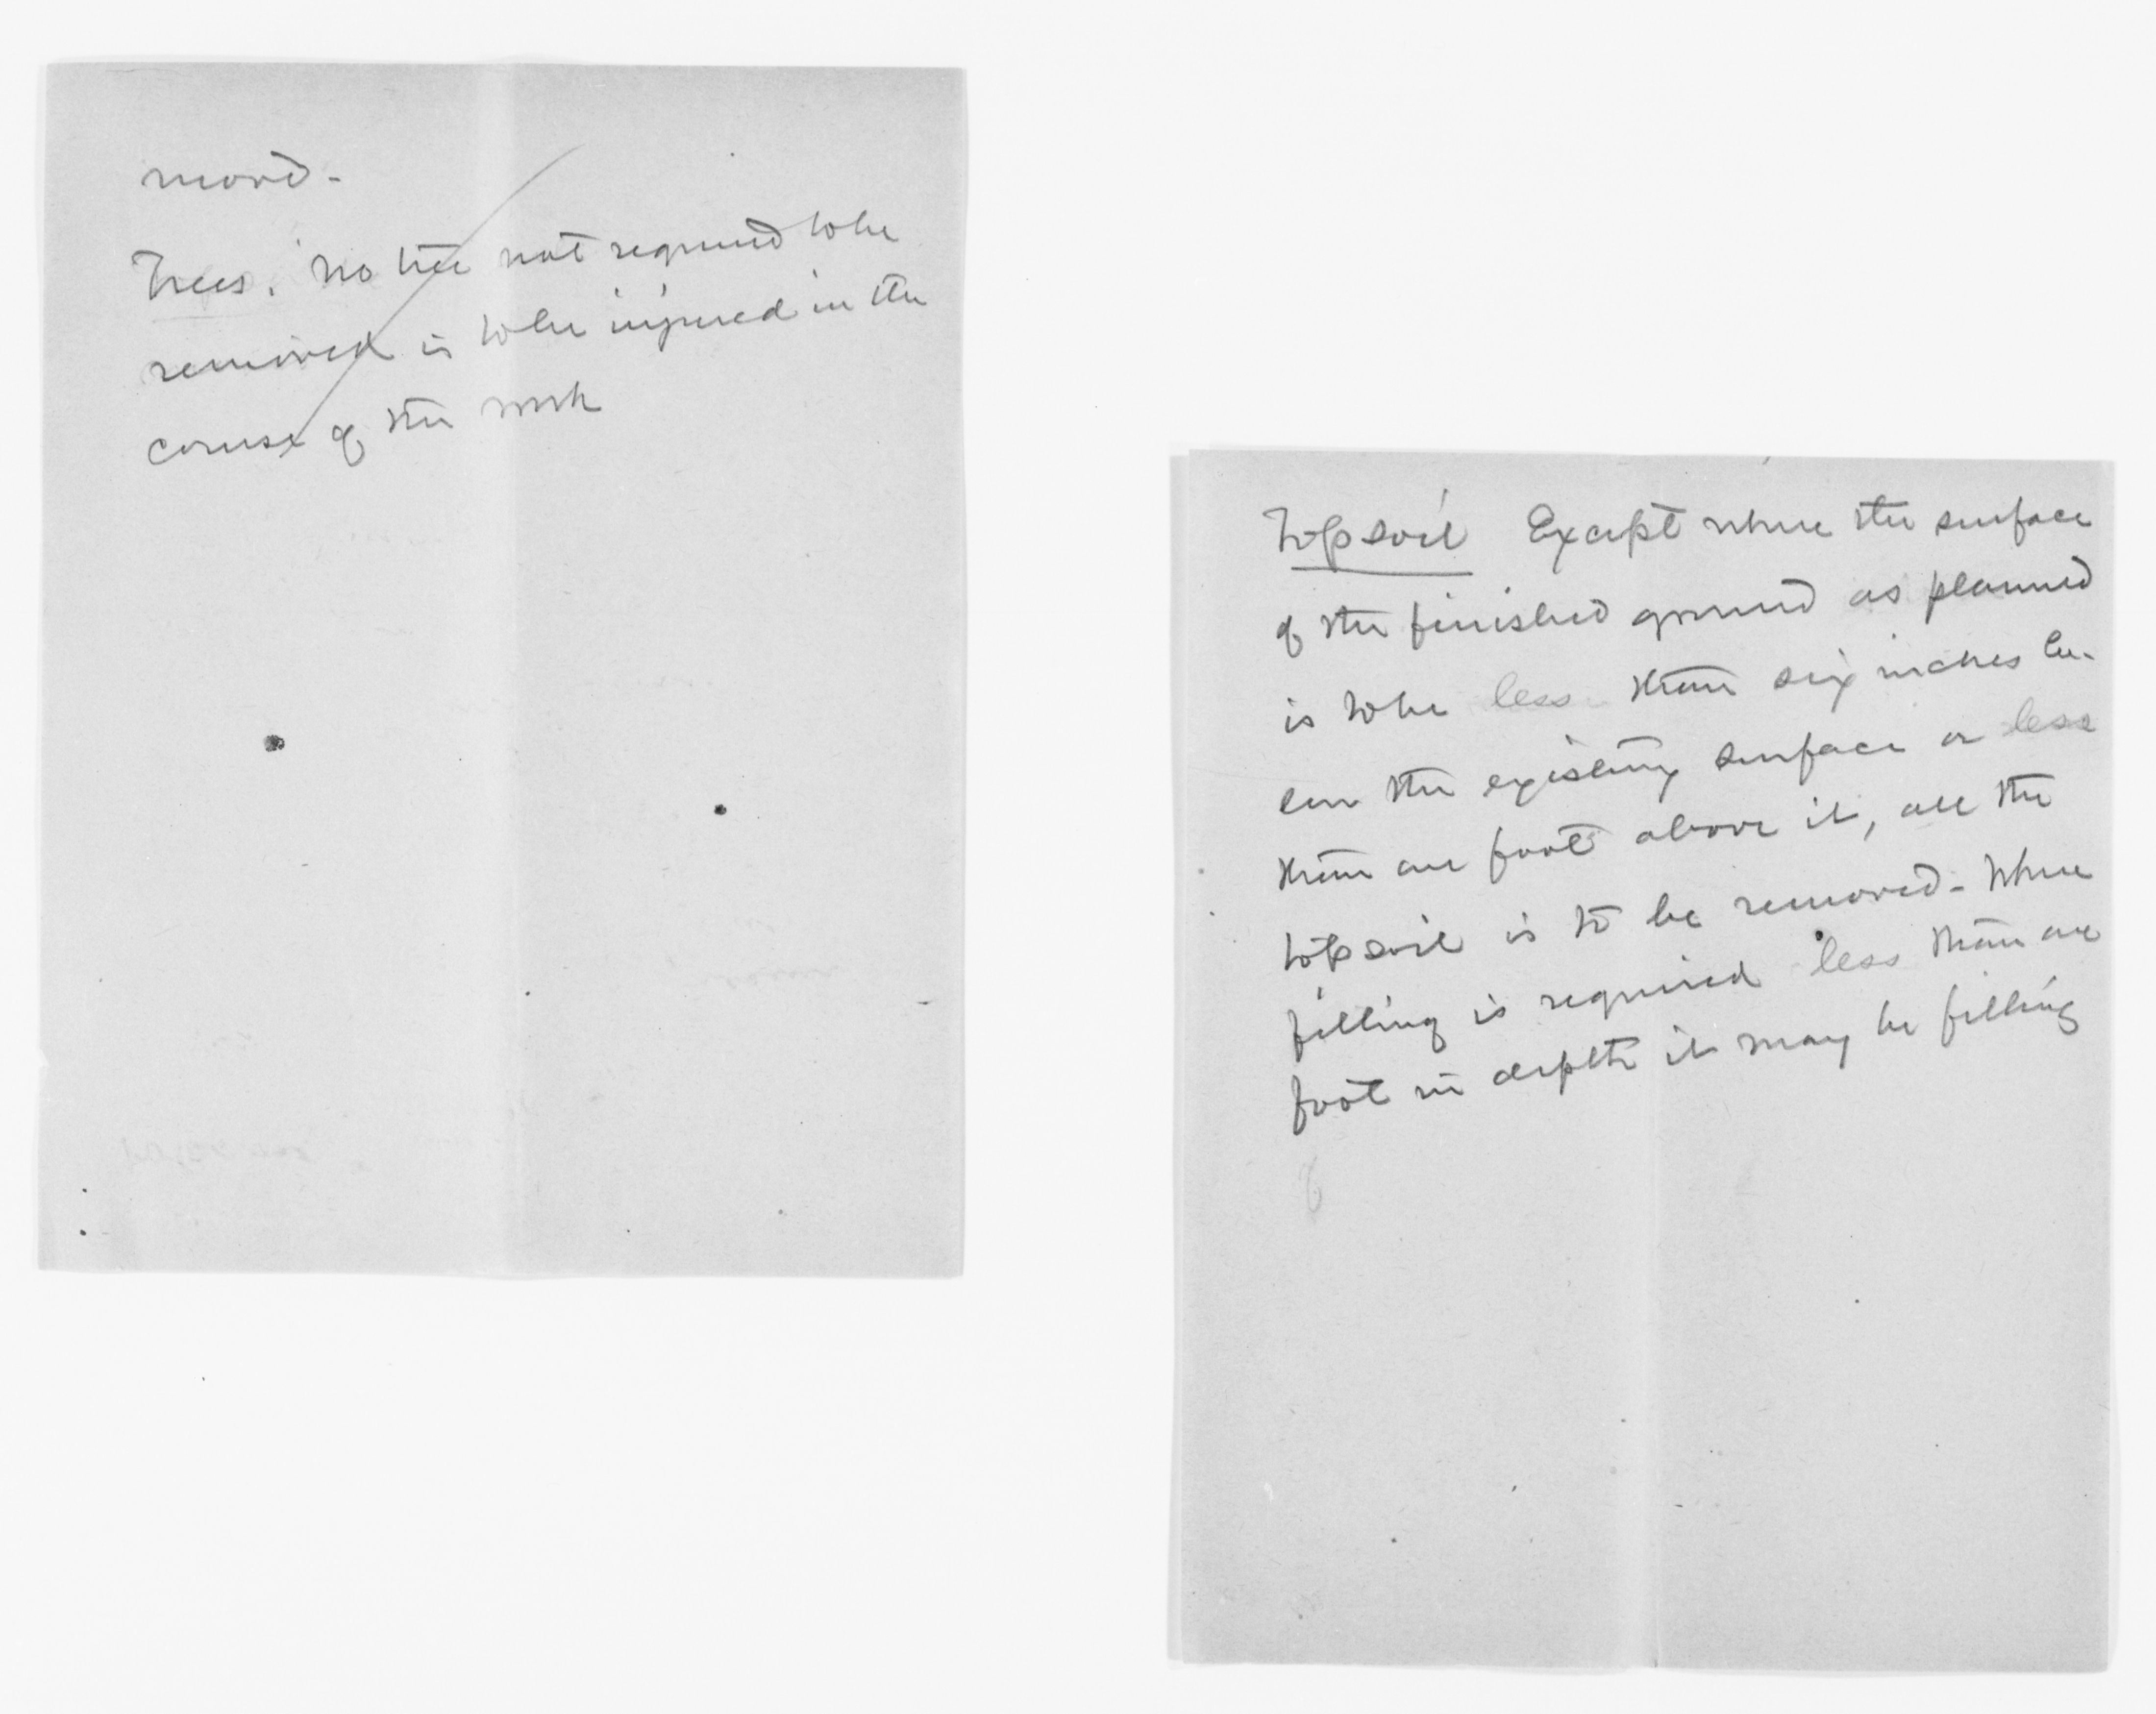 moved -
Trees. No tree not required to be
removed is to be injured in the
course of the work
Topsoil Except where the surface
of the finished ground as planned
is to be less than six inches be-
low the existing surface or less
than one foot above it, all the
topsoil is to be removed - Where
filling is required less than one
foot in depth it may be filling